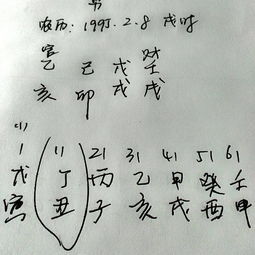 农历: 1995. 2. 8 戌时
官 财
乙 己 戊 壬
亥 卯 戌 戌
(1)
1 11 21 31 41 51 61
戊 丁 丙 乙 甲 癸 壬
寅 丑 子 亥 戌 酉 申